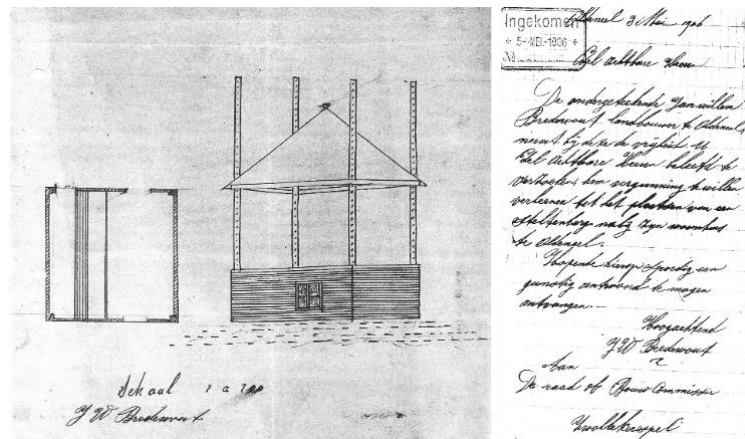 Schaal 1 a 100
J W Bredewout
Ingekomen
5-MEI-1906
No
Oldeneel 3 Mei 1906
Edel achtbare Heeren
De ondergeteekende Jan willem
Bredewout landbouwer te Oldeneel,
neemt bij deze de vrijheid U
Edel Achtbare Heeren beleefd te
verzoeken hem vergunning te willen
verleenen tot het plaatsen van een
steltenberg nabij zijn woonhuis
te Oldeneel.
Hopende hierop spoedig een
gunstig antwoord te mogen
ontvangen.
Hoogachtend
J W Bredewout
Aan
De raad of Bouw Commissie
Zwollekerspel